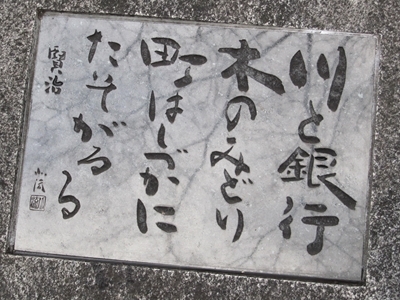 川と銀行
木のみどり
町はしづかに
たそがるる
賢治